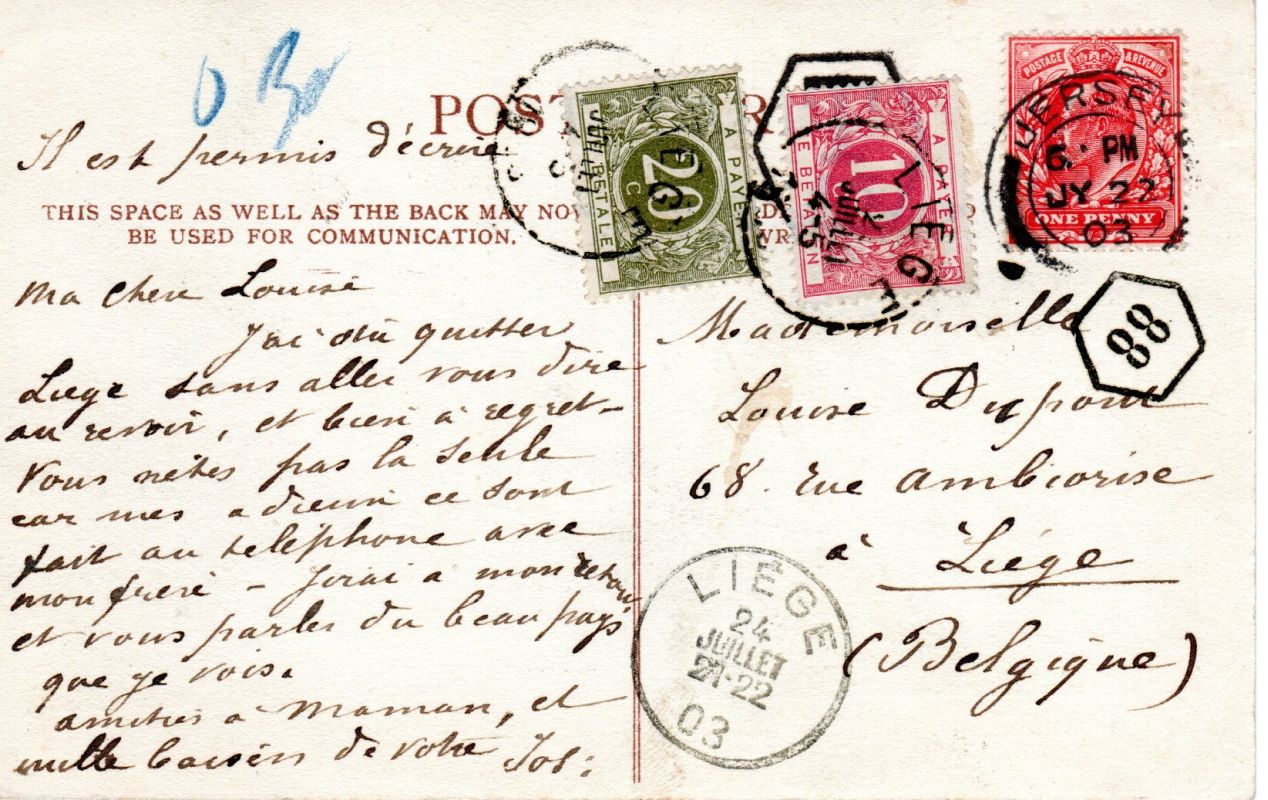 0 30
POST
Il est permis d'écrire
THIS SPACE AS WELL AS THE BACK MAY NOW
BE USED FOR COMMUNICATION.
Ma chere Louise
J'ai dû quitter
Liege sans aller vous dire
au revoir, et bien à regret -
Vous nêtes pas la seule
car mes adieux ce sont
fait au telephone avec
mon frere - J'irai a mon retour
et vous parler du beau pays
que je vois.
amities à Maman, et
mille baisers de votre Jos:
A PAYER
20
C
A PAYER
TE BETALEN
10
LIEGE
JUILLET
4-5
POSTAGE & REVENUE
ONE PENNY
JERSEY
6. PM
JY 22
03
88
Mademoiselle
Louise Dupont
68. rue Ambiorise
à Liége
(Belgique)
LIÉGE
24
JUILLET
21-22
03